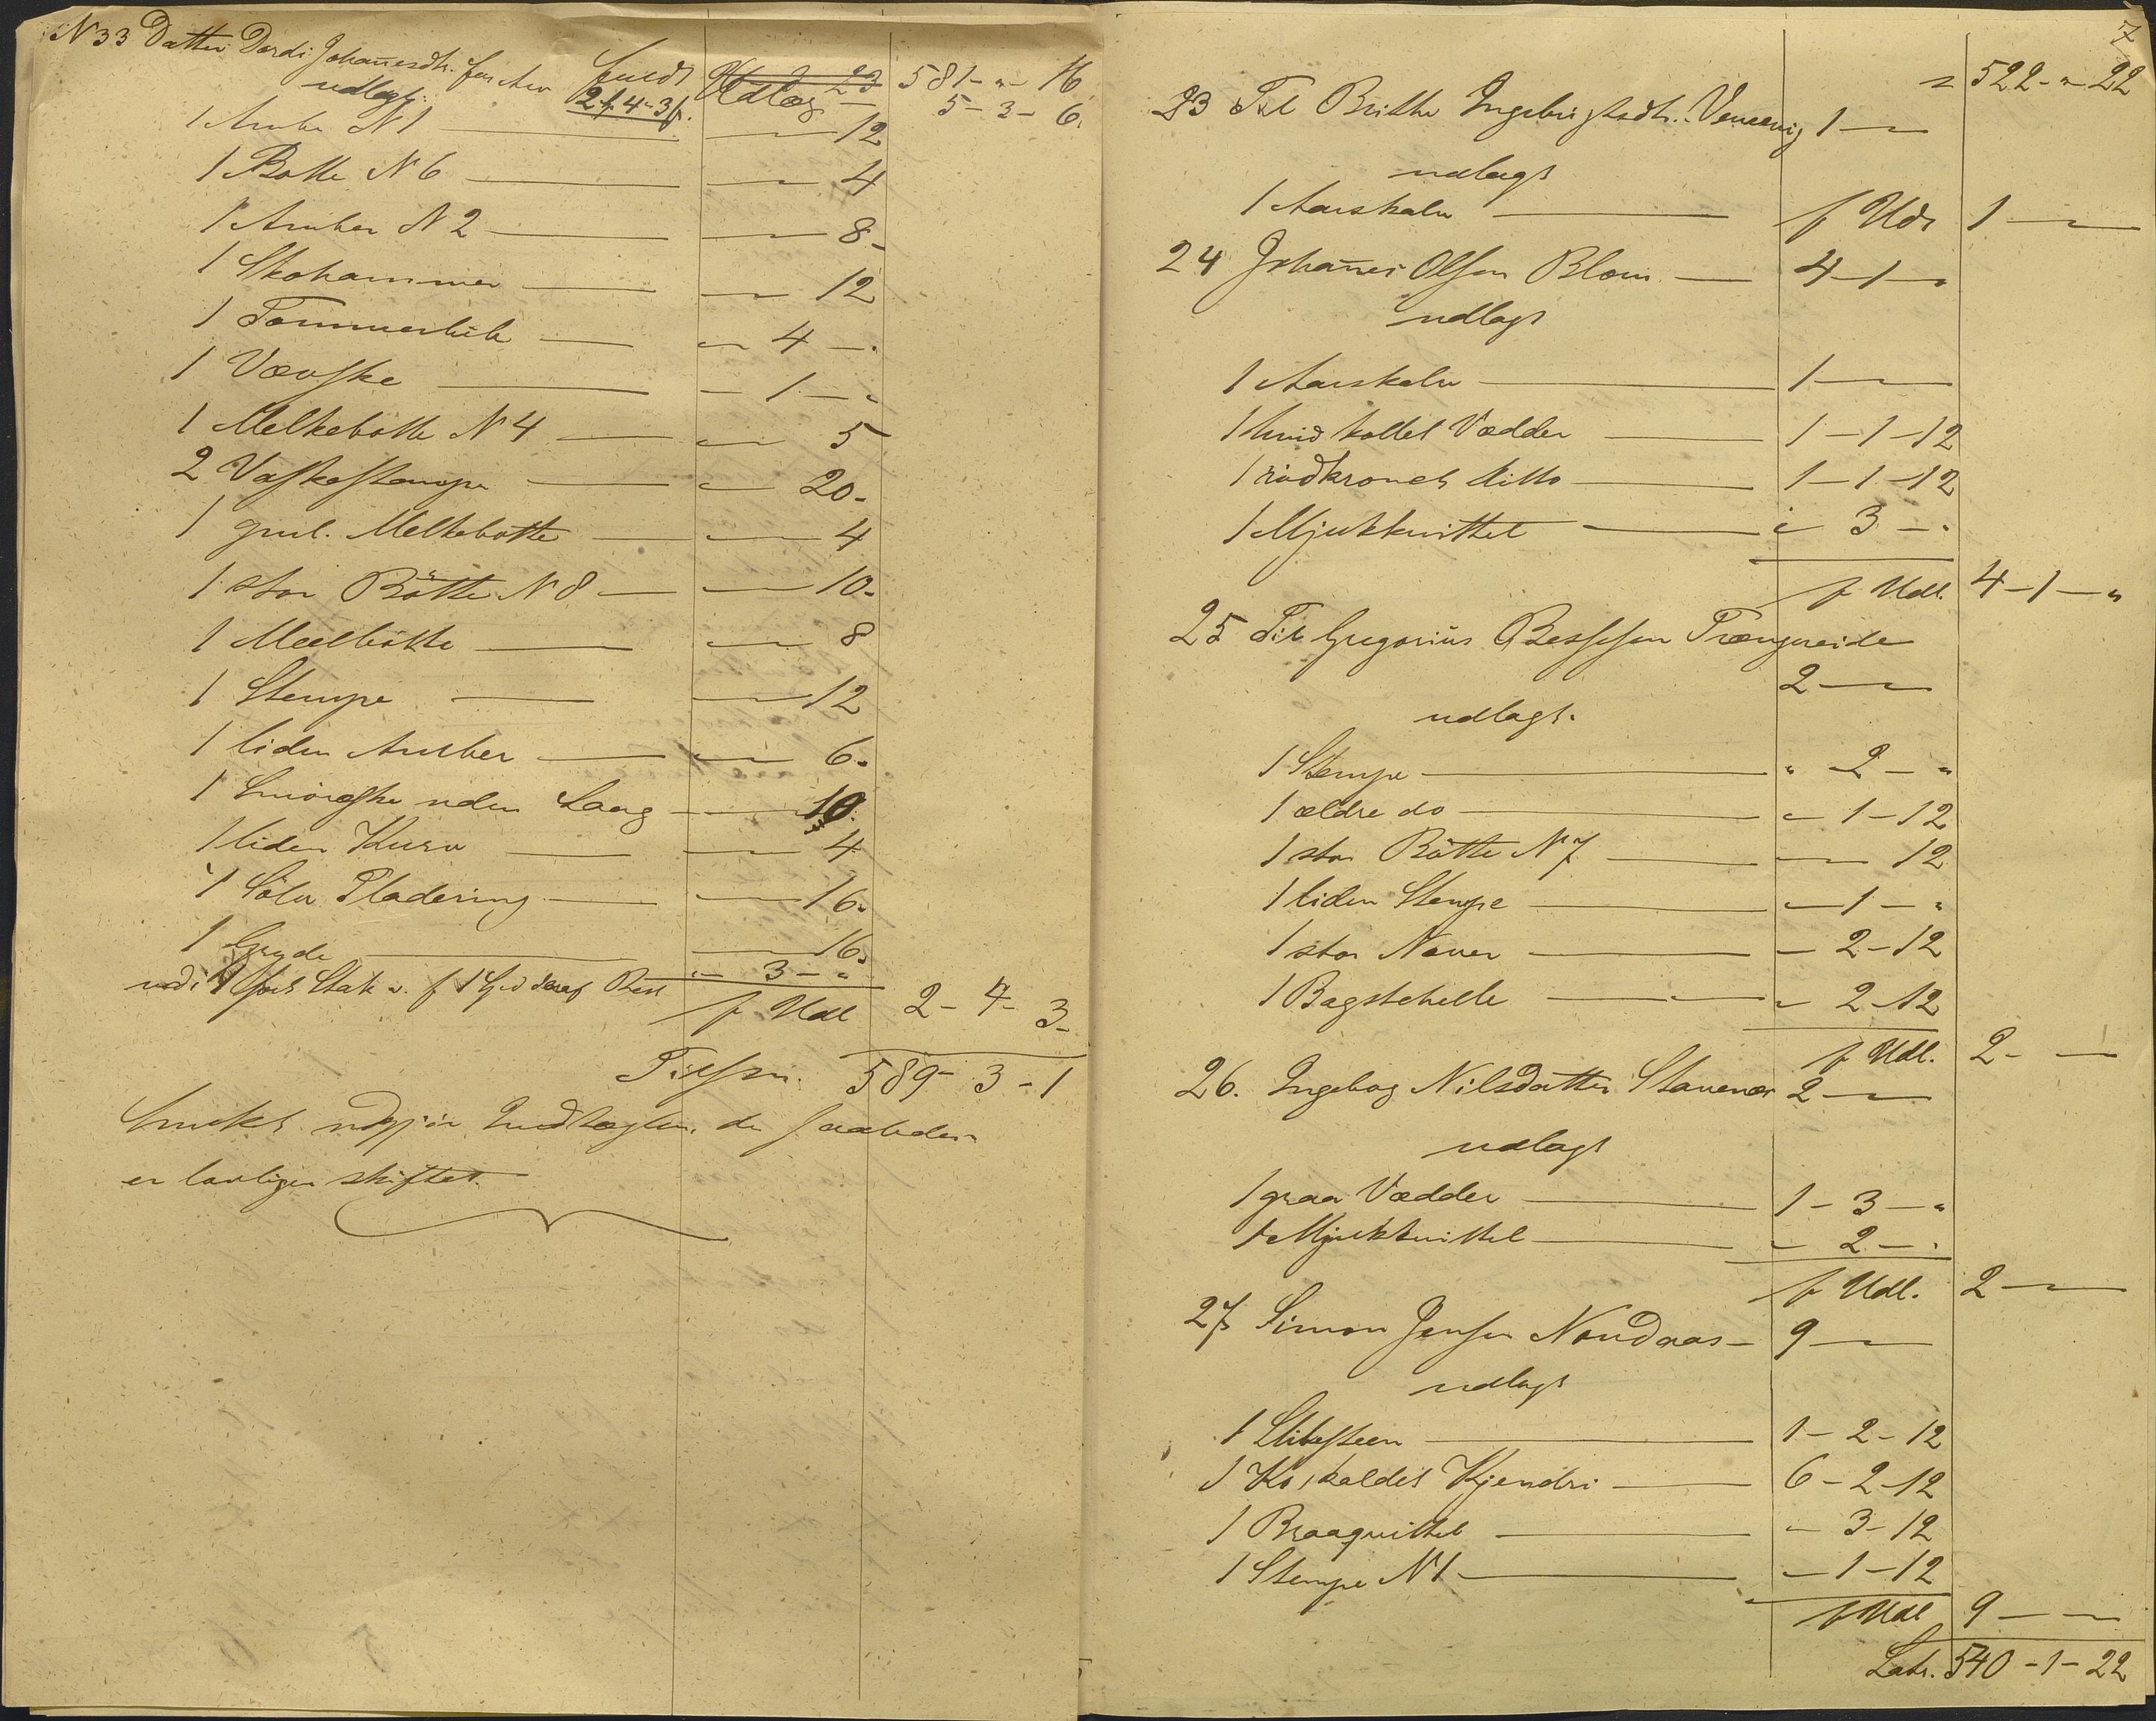 N 33 Datter Dordi Johanesdtr. for Arv fuldt
udlagt: 2 f. 4 - 3 f. Udlæg 23 581 - " - 16
5 - 3 - 6
1 Ambr N 1 — 12
1 Botte N 6 — 4
1 Amber N 2 — 8 -
1 Skohammer — 12
1 Tømmerbile " 4 - .
1 Vævske - 1 - "
1 Melkebøtte N 4 " 5
2 Vaskestampe " 20 -
1 gml. Melkebøtte — 4
1 stor Bøtte N 8 — 10 -
1 Meelbøtte — 8
1 Stempe — 12
1 liden Amber — 6 -
1 Smøræske uden Laag — 10
1 liden Kurv — 4
1 Sølv Pladering — 16 -
1 Gryde — 16 -
udi 1 Stak " - 3 - "
f Udl 2 - 4 - 3 -
Tilsm. 589 - 3 - 1
Indtægten, de saaledes
er lovligen skiftet
7
2 522 - " - 22
23 Til Brithe Ingebrigtsdtr. 1 —
udlagt
1 Aarskalv — f Uds 1 —
24 Johanes Olsen Blom — 4 - 1 - "
udlagt
1 Aarskalv — 1 —
1 hvid kollet Vædder — 1 - 1 - 12
1 rødkronet ditto — 1 - 1 - 12
1 Mjukkvittel — " 3 - "
f Udl. 4 - 1 - "
25 Til Gregorius Bessesen Trængereide
2 —
udlagt.
1 Stempe — " 2 - "
1 ældre do — " 1 - 12
1 stor Bøtte N 7 — 12
1 liden Stempe — 1 - "
1 stor Naver — - 2 - 12
1 Bagstehelle — " 2 - 12
f Udl. 2 - —
26. Ingebog Nilsdatter Stavenes 2 —
udlagt
1 graa Vædder — 1 - 3 - "
1 Mjukkvittel — - 2 - "
f Udl. 2 —
27 Simon Jensen Nondaas - 9 —
udlagt
1 Slibesteen — 1 - 2 - 12
1 Ko, kaldet Kjendri — 6 - 2 - 12
1 Braaqvittel — - 3 - 12
1 Stempe N 1 — - 1 - 12
f Udl 9 — —
Latr. 540 - 1 - 22